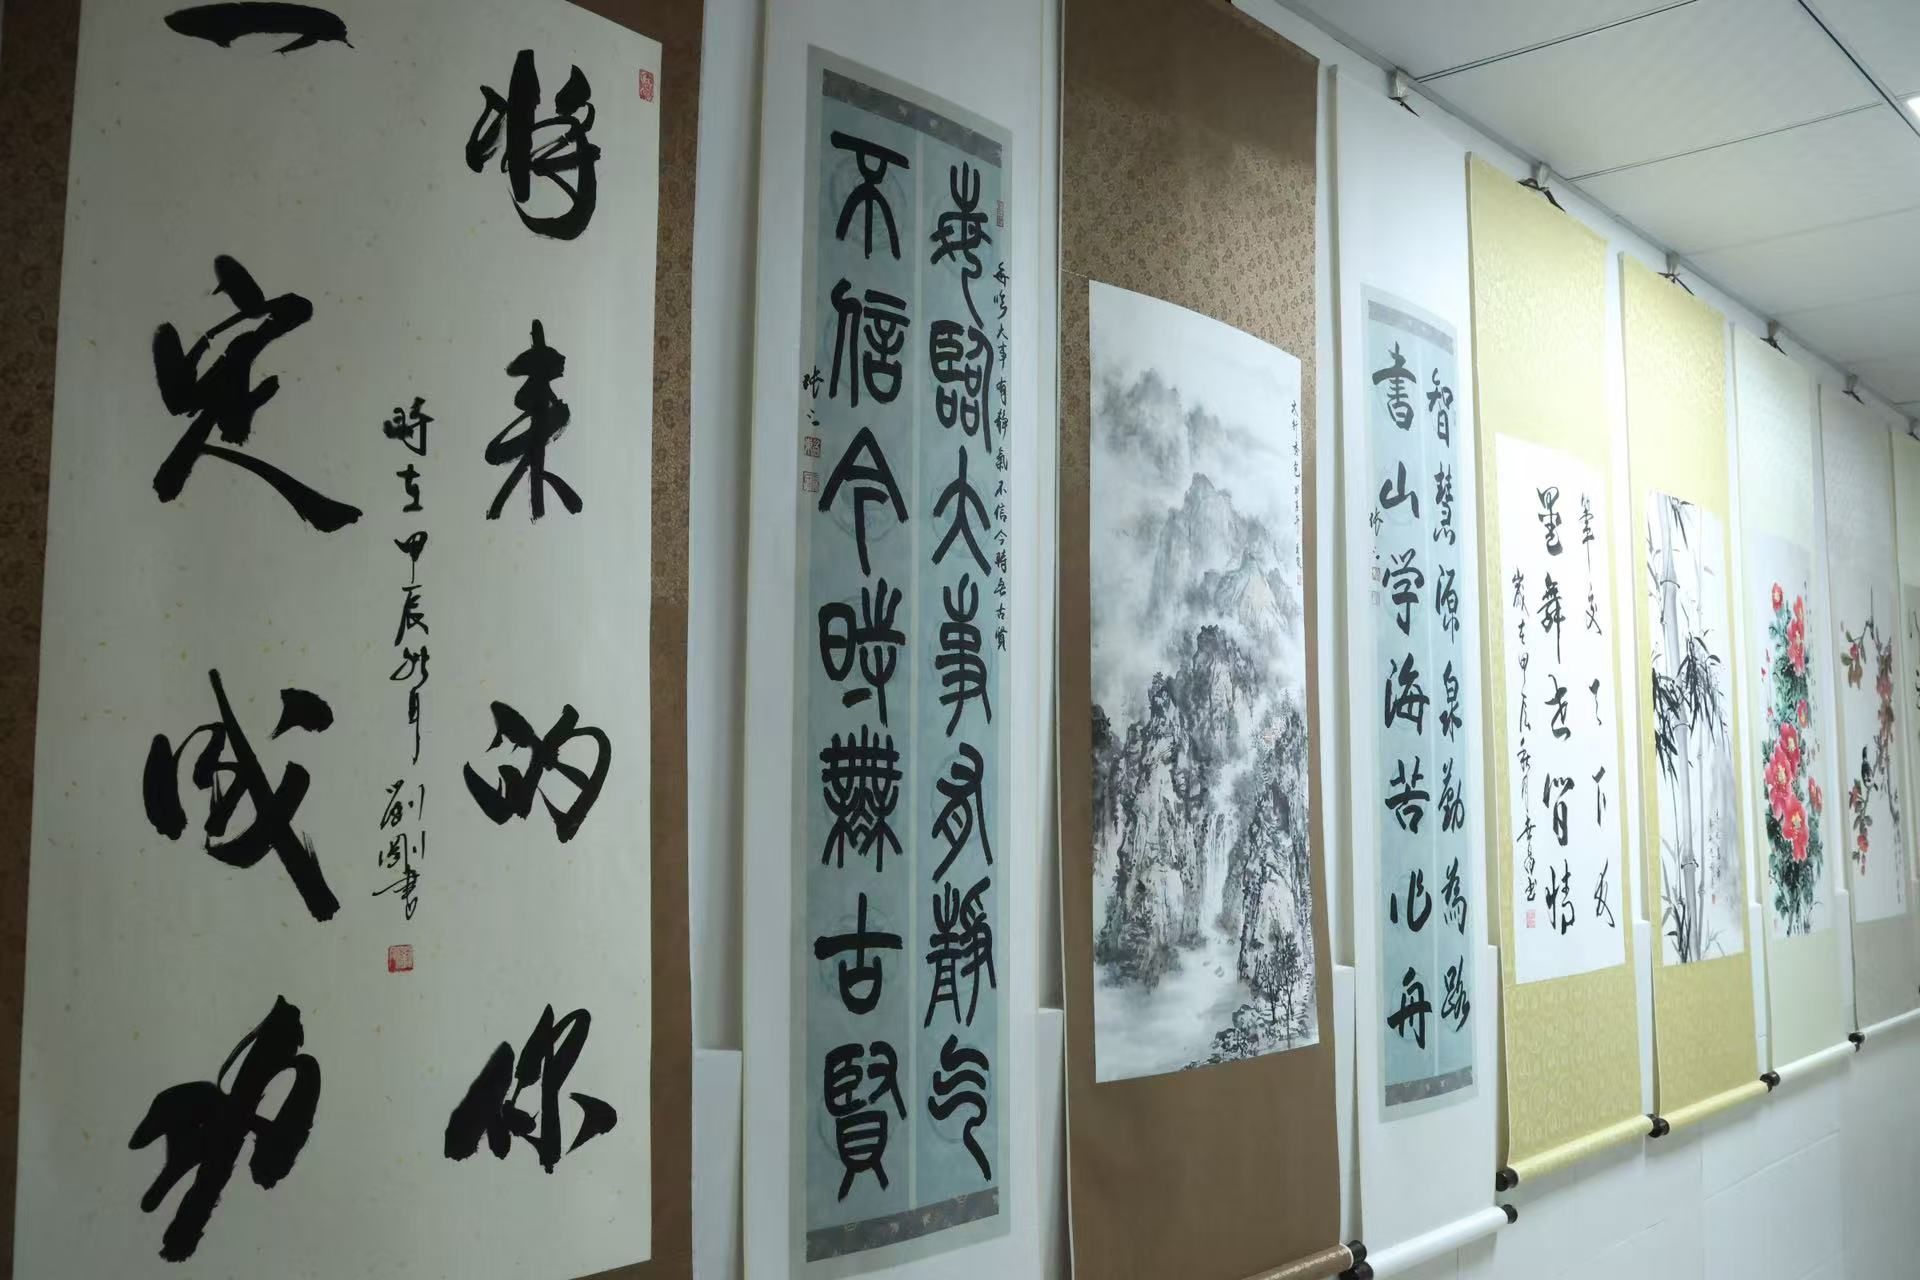 将来的你
一定成功
時在甲辰 月 劉剛書
每臨大事有靜气
不信今時無古賢
每臨大事有静氣不信今時無古賢
智慧源泉勤為路
書山学海苦作舟
筆交天下友
墨舞世间情
歲在甲辰秋月